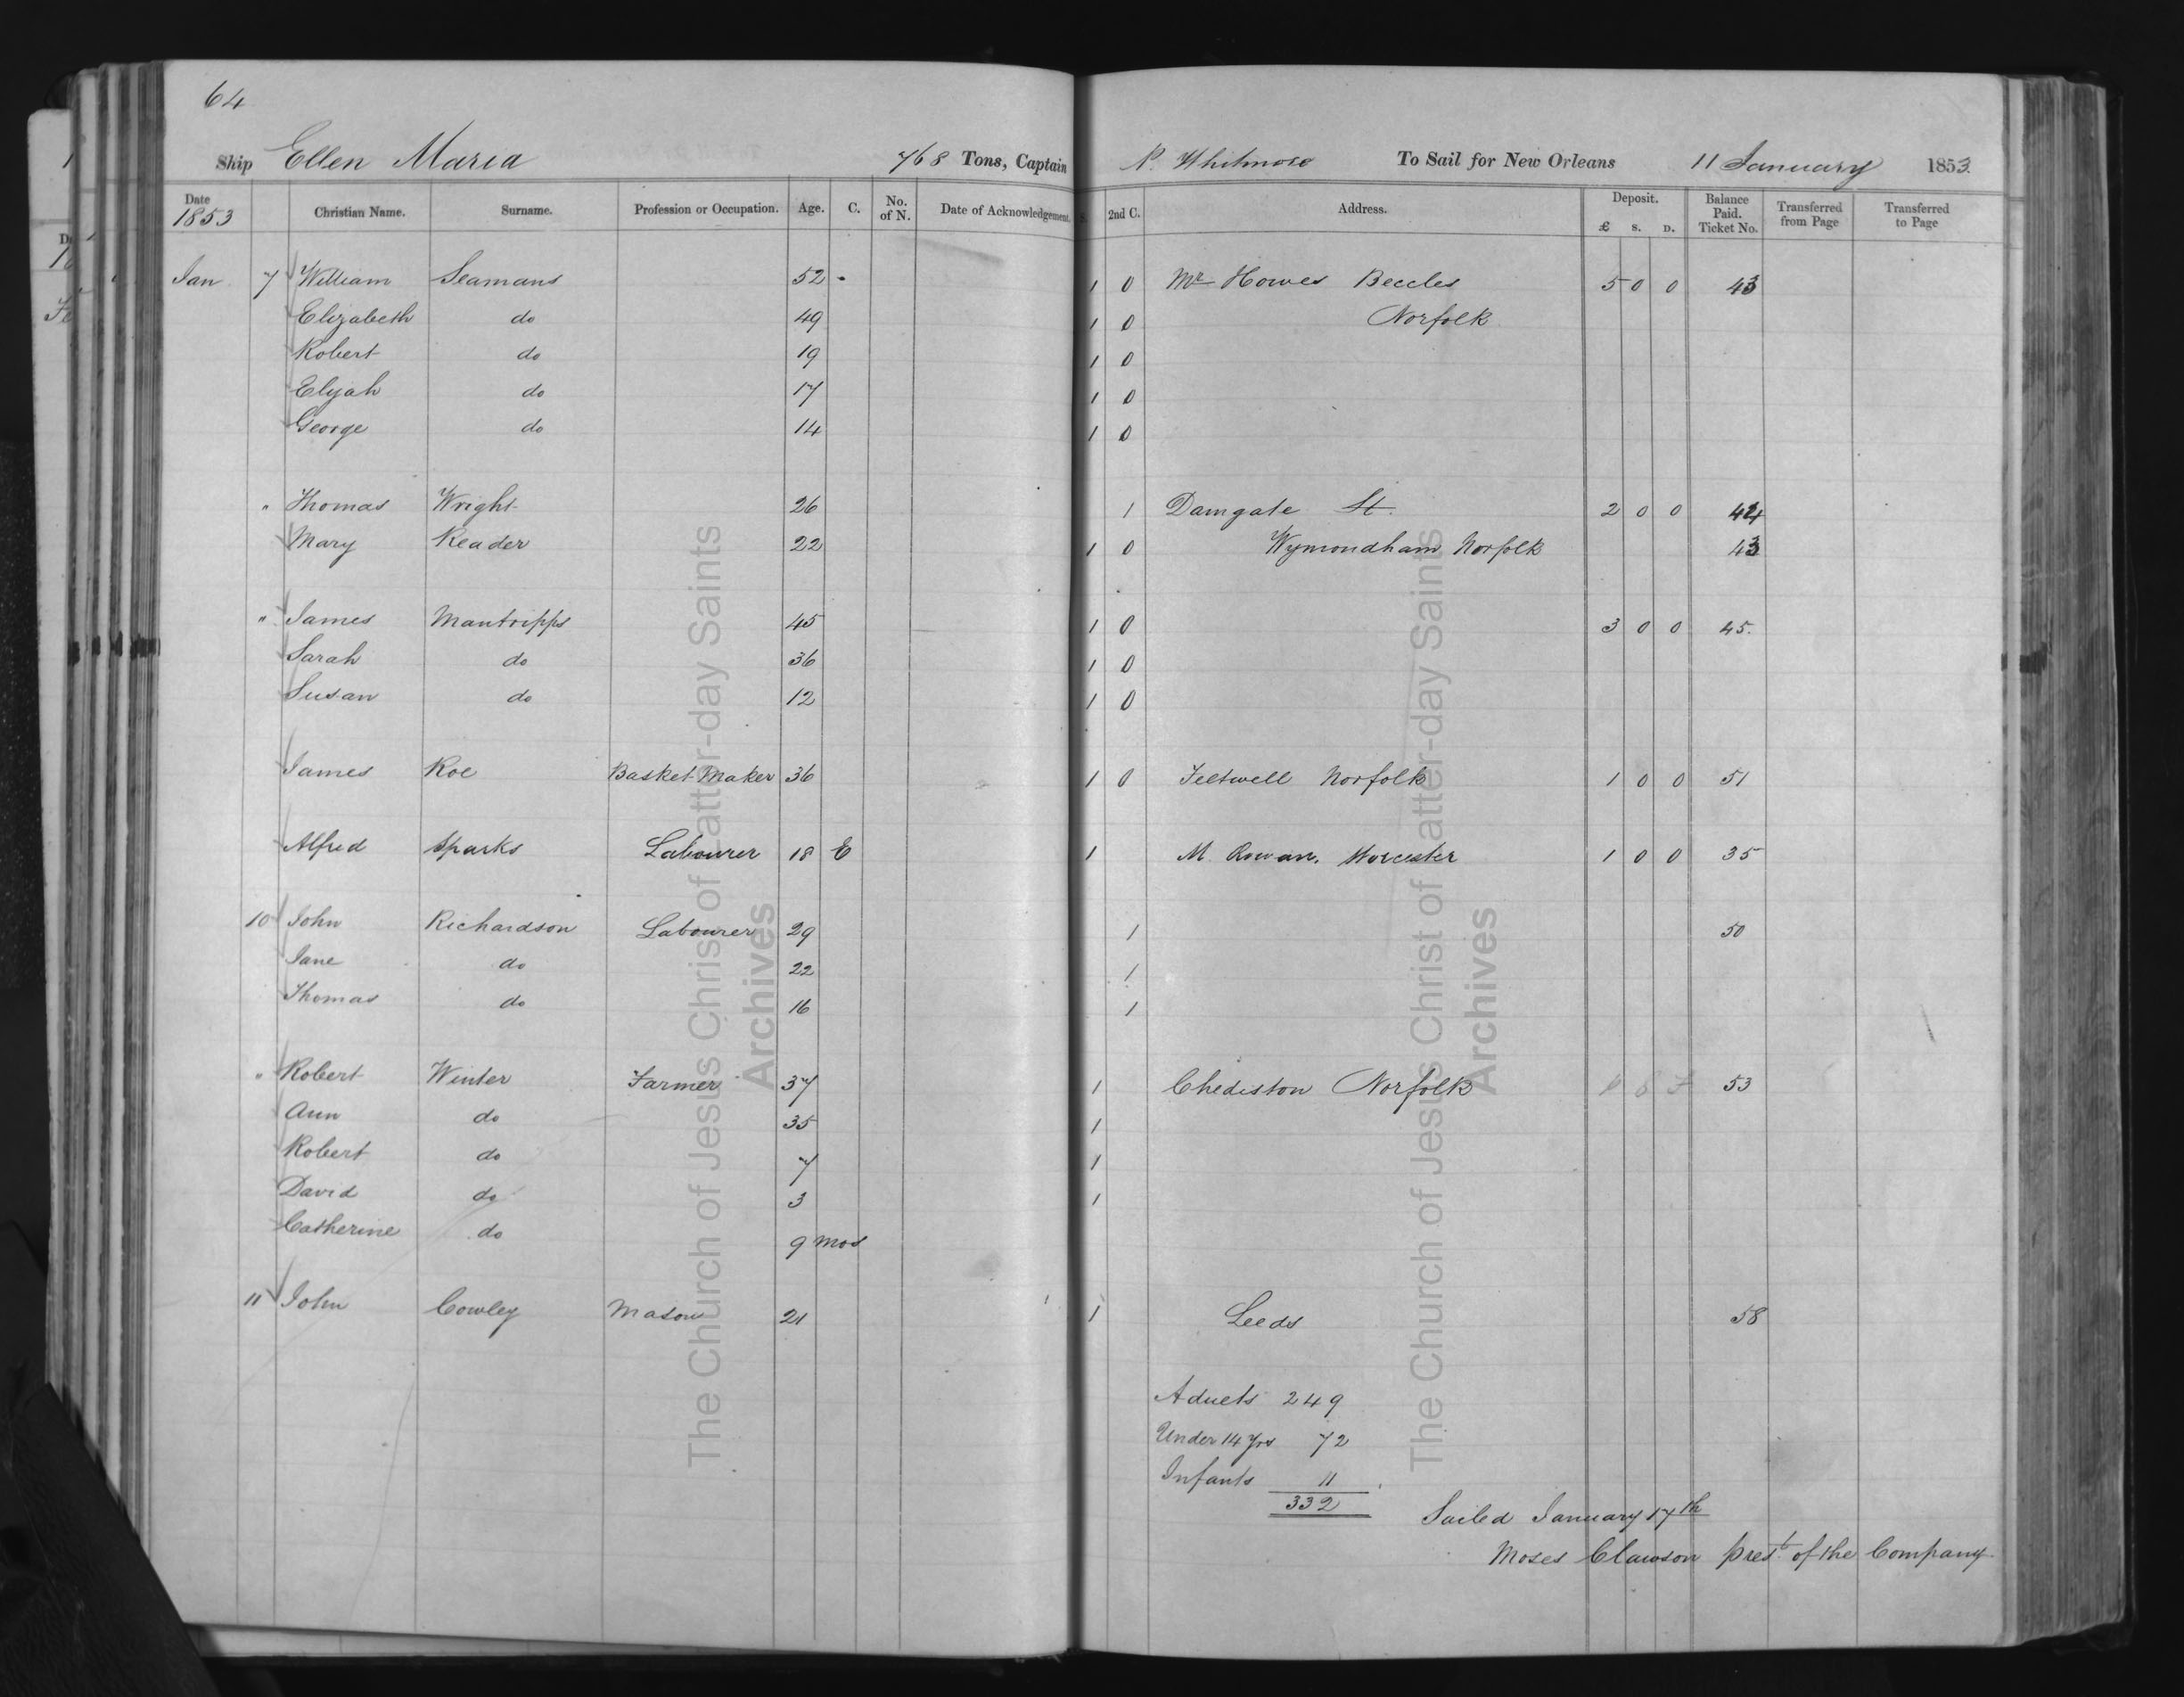 64
Ship Ellen Maria 768 Tons, Captain P. Whitmore To Sail for New Orleans 11 January 1853
Date Christian Name. Surname. Profession or Occupation. Age. C. No. of N. Date of Acknowledgement. S. 2nd C. Address. Deposit. £ S. D. Balance Paid. Ticket No. Transferred from Page Transferred to Page
1853
Jan 7 William Seamans 52 1 0 Mr Howes Beccles 5 0 0 43
Elizabeth do 49 1 0 Norfolk
Robert do 19 1 0
Elijah do 17 1 0
George do 14 1 0
" Thomas Wright 26 1 Damgate St. 2 0 0 42
Mary Reader 22 1 0 Wymondham Norfolk 43
" James Mantripps 45 1 0 3 0 0 45.
Sarah do 36 1 0
Susan do 12 1 0
James Roe Basket Maker 36 1 0 Feltwell Norfolk 1 0 0 51
Alfred Sparks Labourer 18 E 1 M. Rowan, Worcester 1 0 0 35
10 John Richardson Labourer 29 1 50
Jane do 22 1
Thomas do 16 1
" Robert Winter Farmer 37 1 Chediston Norfolk 53
Ann do 35 1
Robert do 7 1
David do 3 1
Catherine do 9 mos
11 John Cowley Mason 21 1 Leeds 58
Adults 249
Under 14 yrs 72
Infants 11
332
Sailed January 17th
Moses Clawson prest. of the Company
The Church of Jesus Christ of Latter-day Saints
Archives
The Church of Jesus Christ of Latter-day Saints
Archives